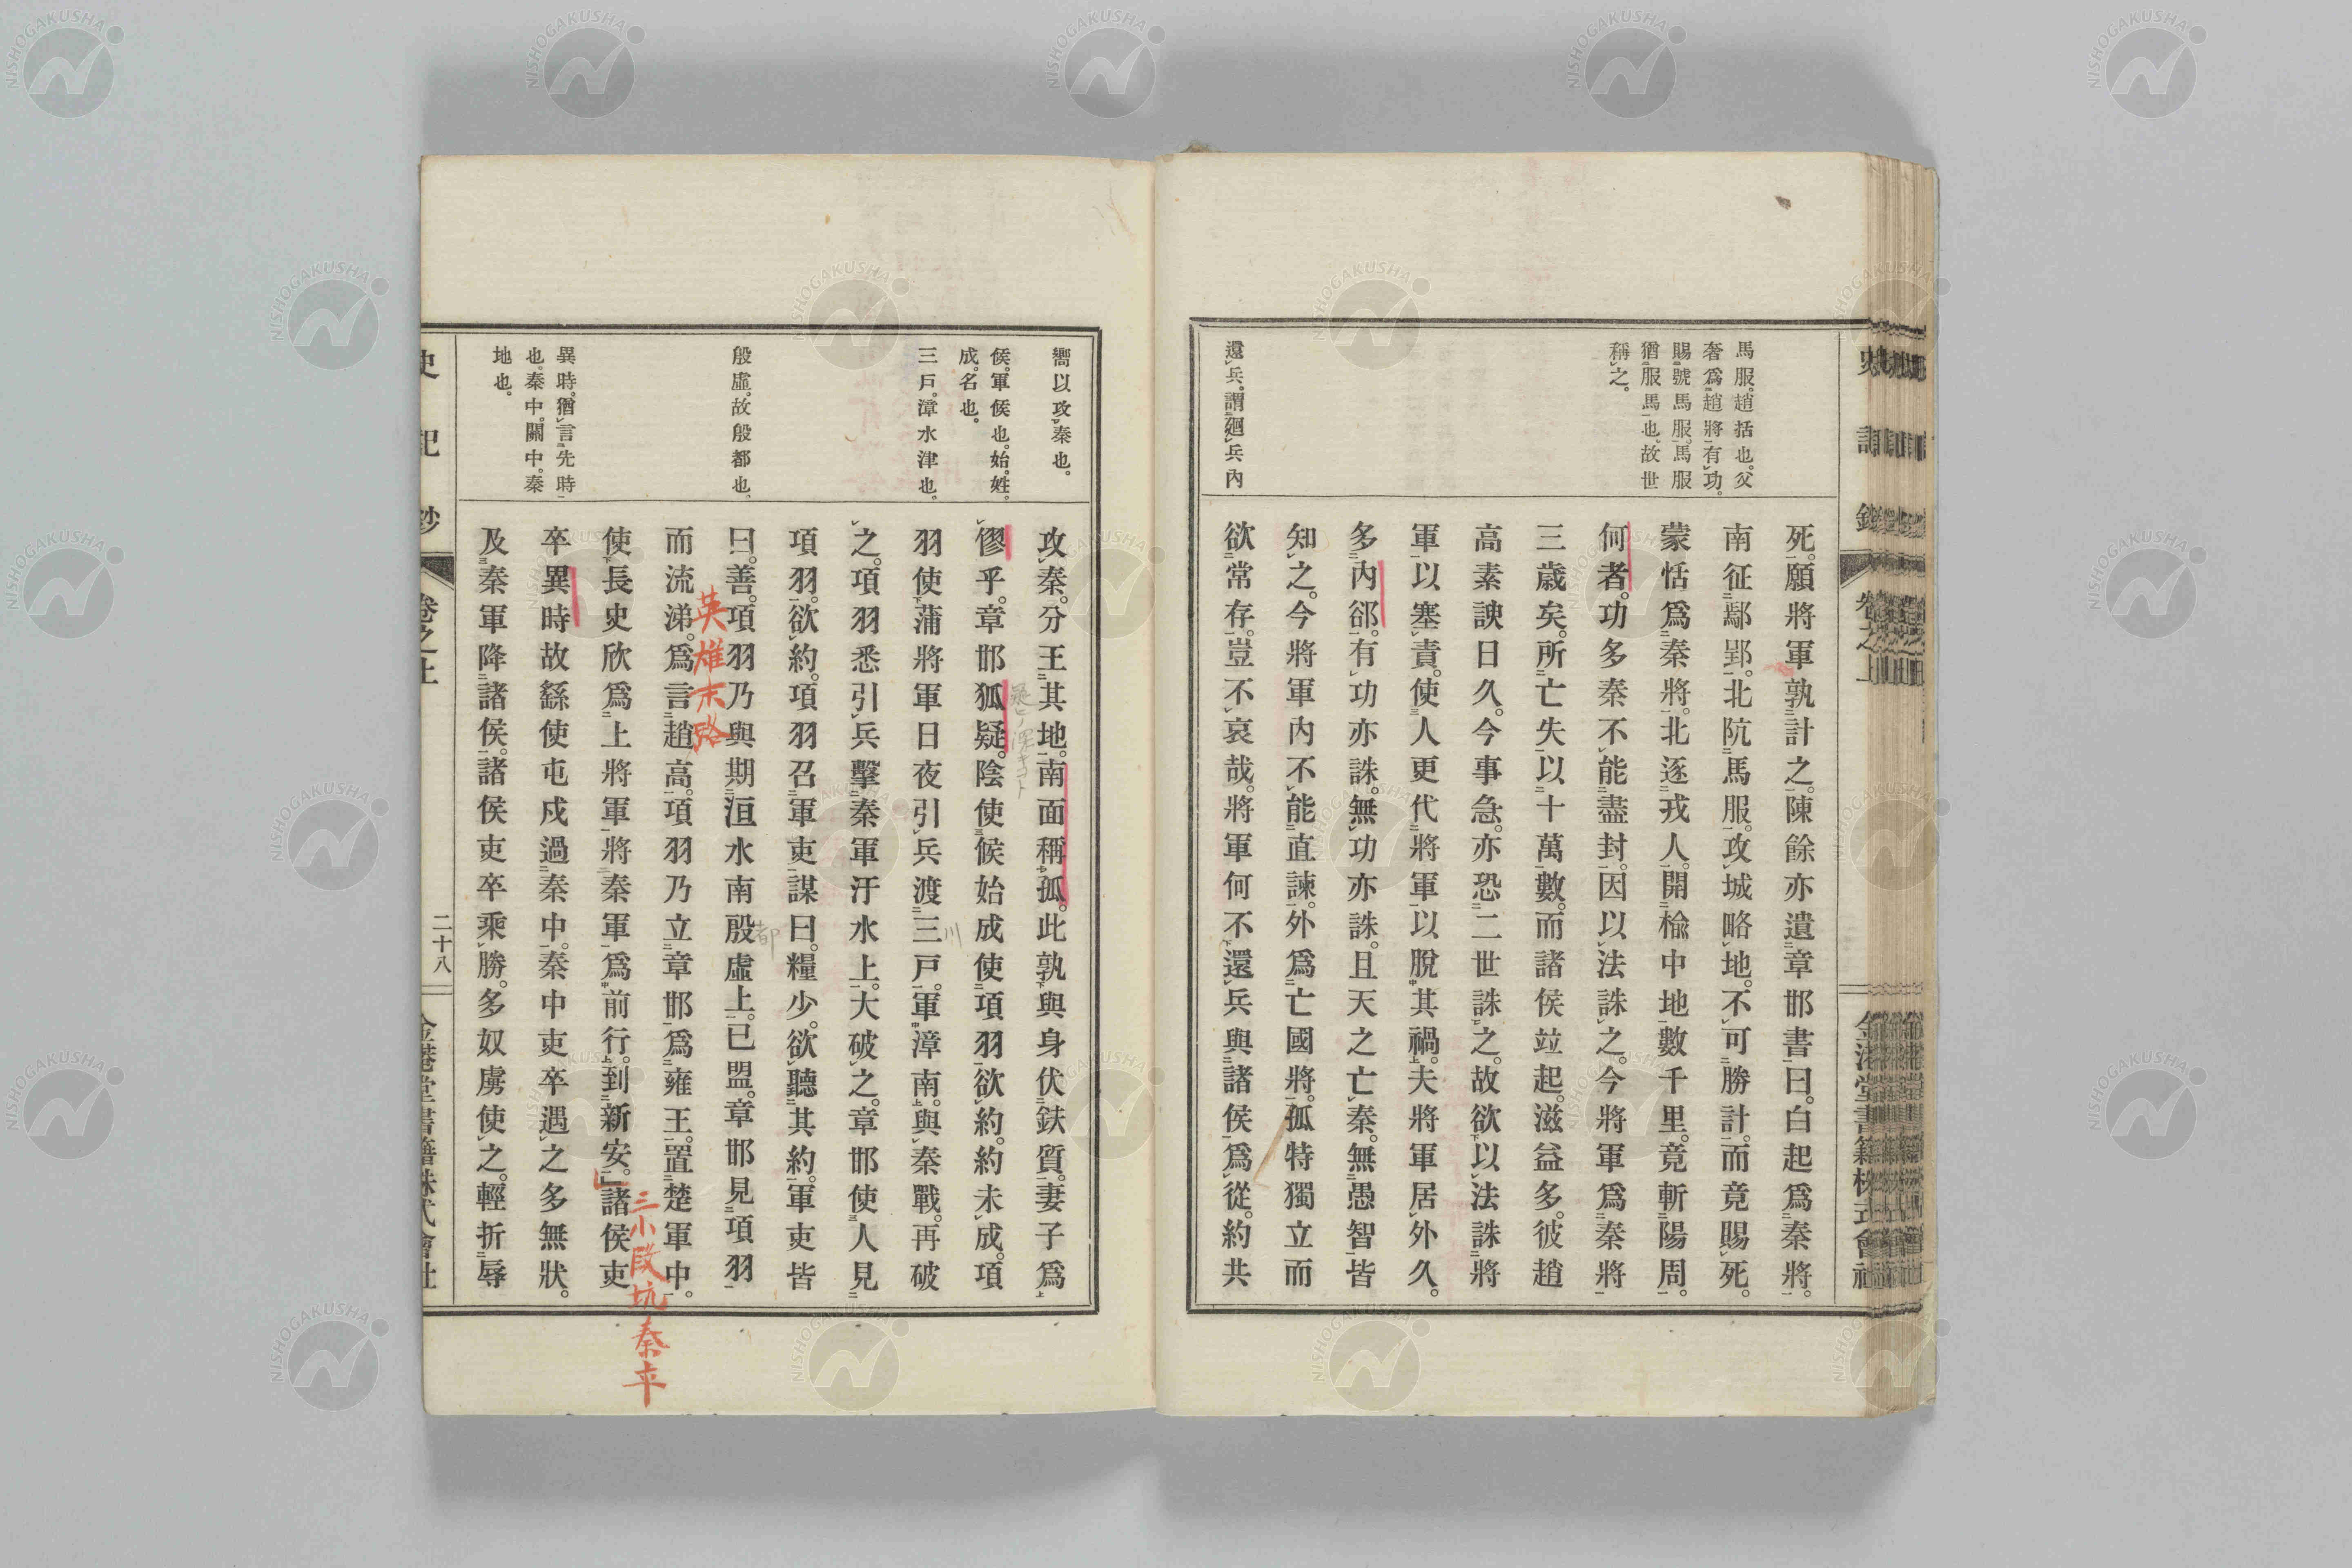 馬服。趙括也。父
奢爲趙將有功。
賜號馬服。馬服
猶服馬也。故世
稱之。
還兵。謂廻兵內
死。願將軍孰計之。陳餘亦遺章邯書曰。白起爲秦將。
南征鄢郢。北阬馬服。攻城略地。不可勝計。而竟賜死。
蒙恬爲秦將。北逐戎人。開楡中地數千里。竟斬陽周。
何者。功多秦不能盡封。因以法誅之。今將軍爲秦將
三歲矣。所亡失以十萬數。而諸侯竝起。滋益多。彼趙
高素諛日久。今事急。亦恐二世誅之。故欲以法誅將
軍以塞責。使人更代將軍以脫其禍。夫將軍居外久。
多內郤。有功亦誅。無功亦誅。且天之亡秦。無愚智皆
知之。今將軍內不能直諫。外爲亡國將。孤特獨立而
欲常存。豈不哀哉。將軍何不還兵與諸侯爲從。約共
嚮以攻秦也。
候。軍候也。始。姓。
成。名也。
三戶。漳水津也。
殷虛。故殷都也。
異時。猶言先時
也。秦中。關中。秦
地也。
攻秦。分王其地。南面稱孤。此孰與身伏鈇質。妻子爲
僇乎。章邯狐疑。陰使候始成使項羽。欲約。約未成。項
羽使蒲將軍日夜引兵渡三戶。軍漳南。與秦戰。再破
之。項羽悉引兵擊秦軍汙水上。大破之。章邯使人見
項羽。欲約。項羽召軍吏謀曰。糧少。欲聽其約。軍吏皆
曰。善。項羽乃與期洹水南殷虛上。已盟。章邯見項羽
而流涕。爲言趙高。項羽乃立章邯爲雍王。置楚軍中。
使長史欣爲上將軍。將秦軍爲前行。到新安。」諸侯吏
卒異時故繇使屯戍過秦中。秦中吏卒遇之多無狀。
及秦軍降諸侯。諸侯吏卒乘勝。多奴虜使之。輕折辱
英雄末路
三小段坑秦卒
都
川
史記鈔
卷之上
二十八
金港堂書籍株式會社
NISHOGAKUSHA